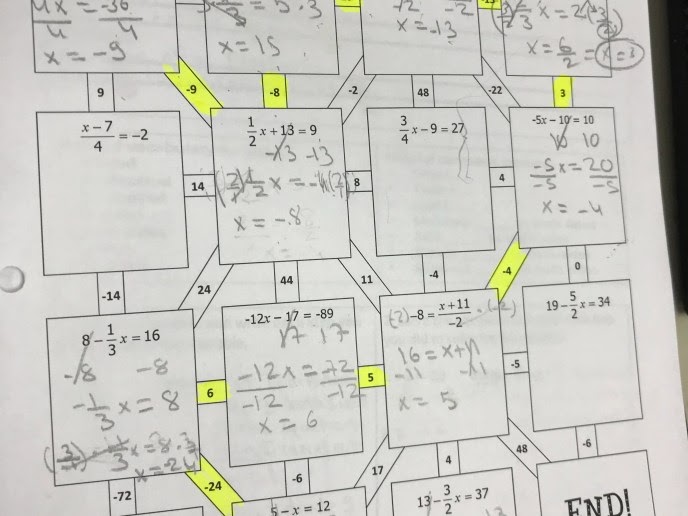 4x = -36
4 4
x = -9
= 5.3
x = 15
-2
x = -13
x = 2
x = 6/2 = x = 3
9
-9
-8
-2
48
-22
3
x − 7 / 4 = -2
1/2 x + 13 = 9
-13 -13
x = -8
3/4 x − 9 = 27
-5x − 10 = 10
10 10
-5x = 20
-5 -5
x = -4
14
8
4
-14
24
44
11
-4
-4
0
8 − 1/3 x = 16
-8 -8
-1/3 x = 8
x = -24
-12x − 17 = -89
17 17
-12x = -72
-12 -12
x = 6
(-2) -8 = x + 11 / -2 · (-2)
16 = x + 11
-11 -11
x = 5
19 − 5/2 x = 34
6
5
-5
-72
-24
-6
17
4
48
-6
5 − x = 12
13 − 3/2 x = 37
END!